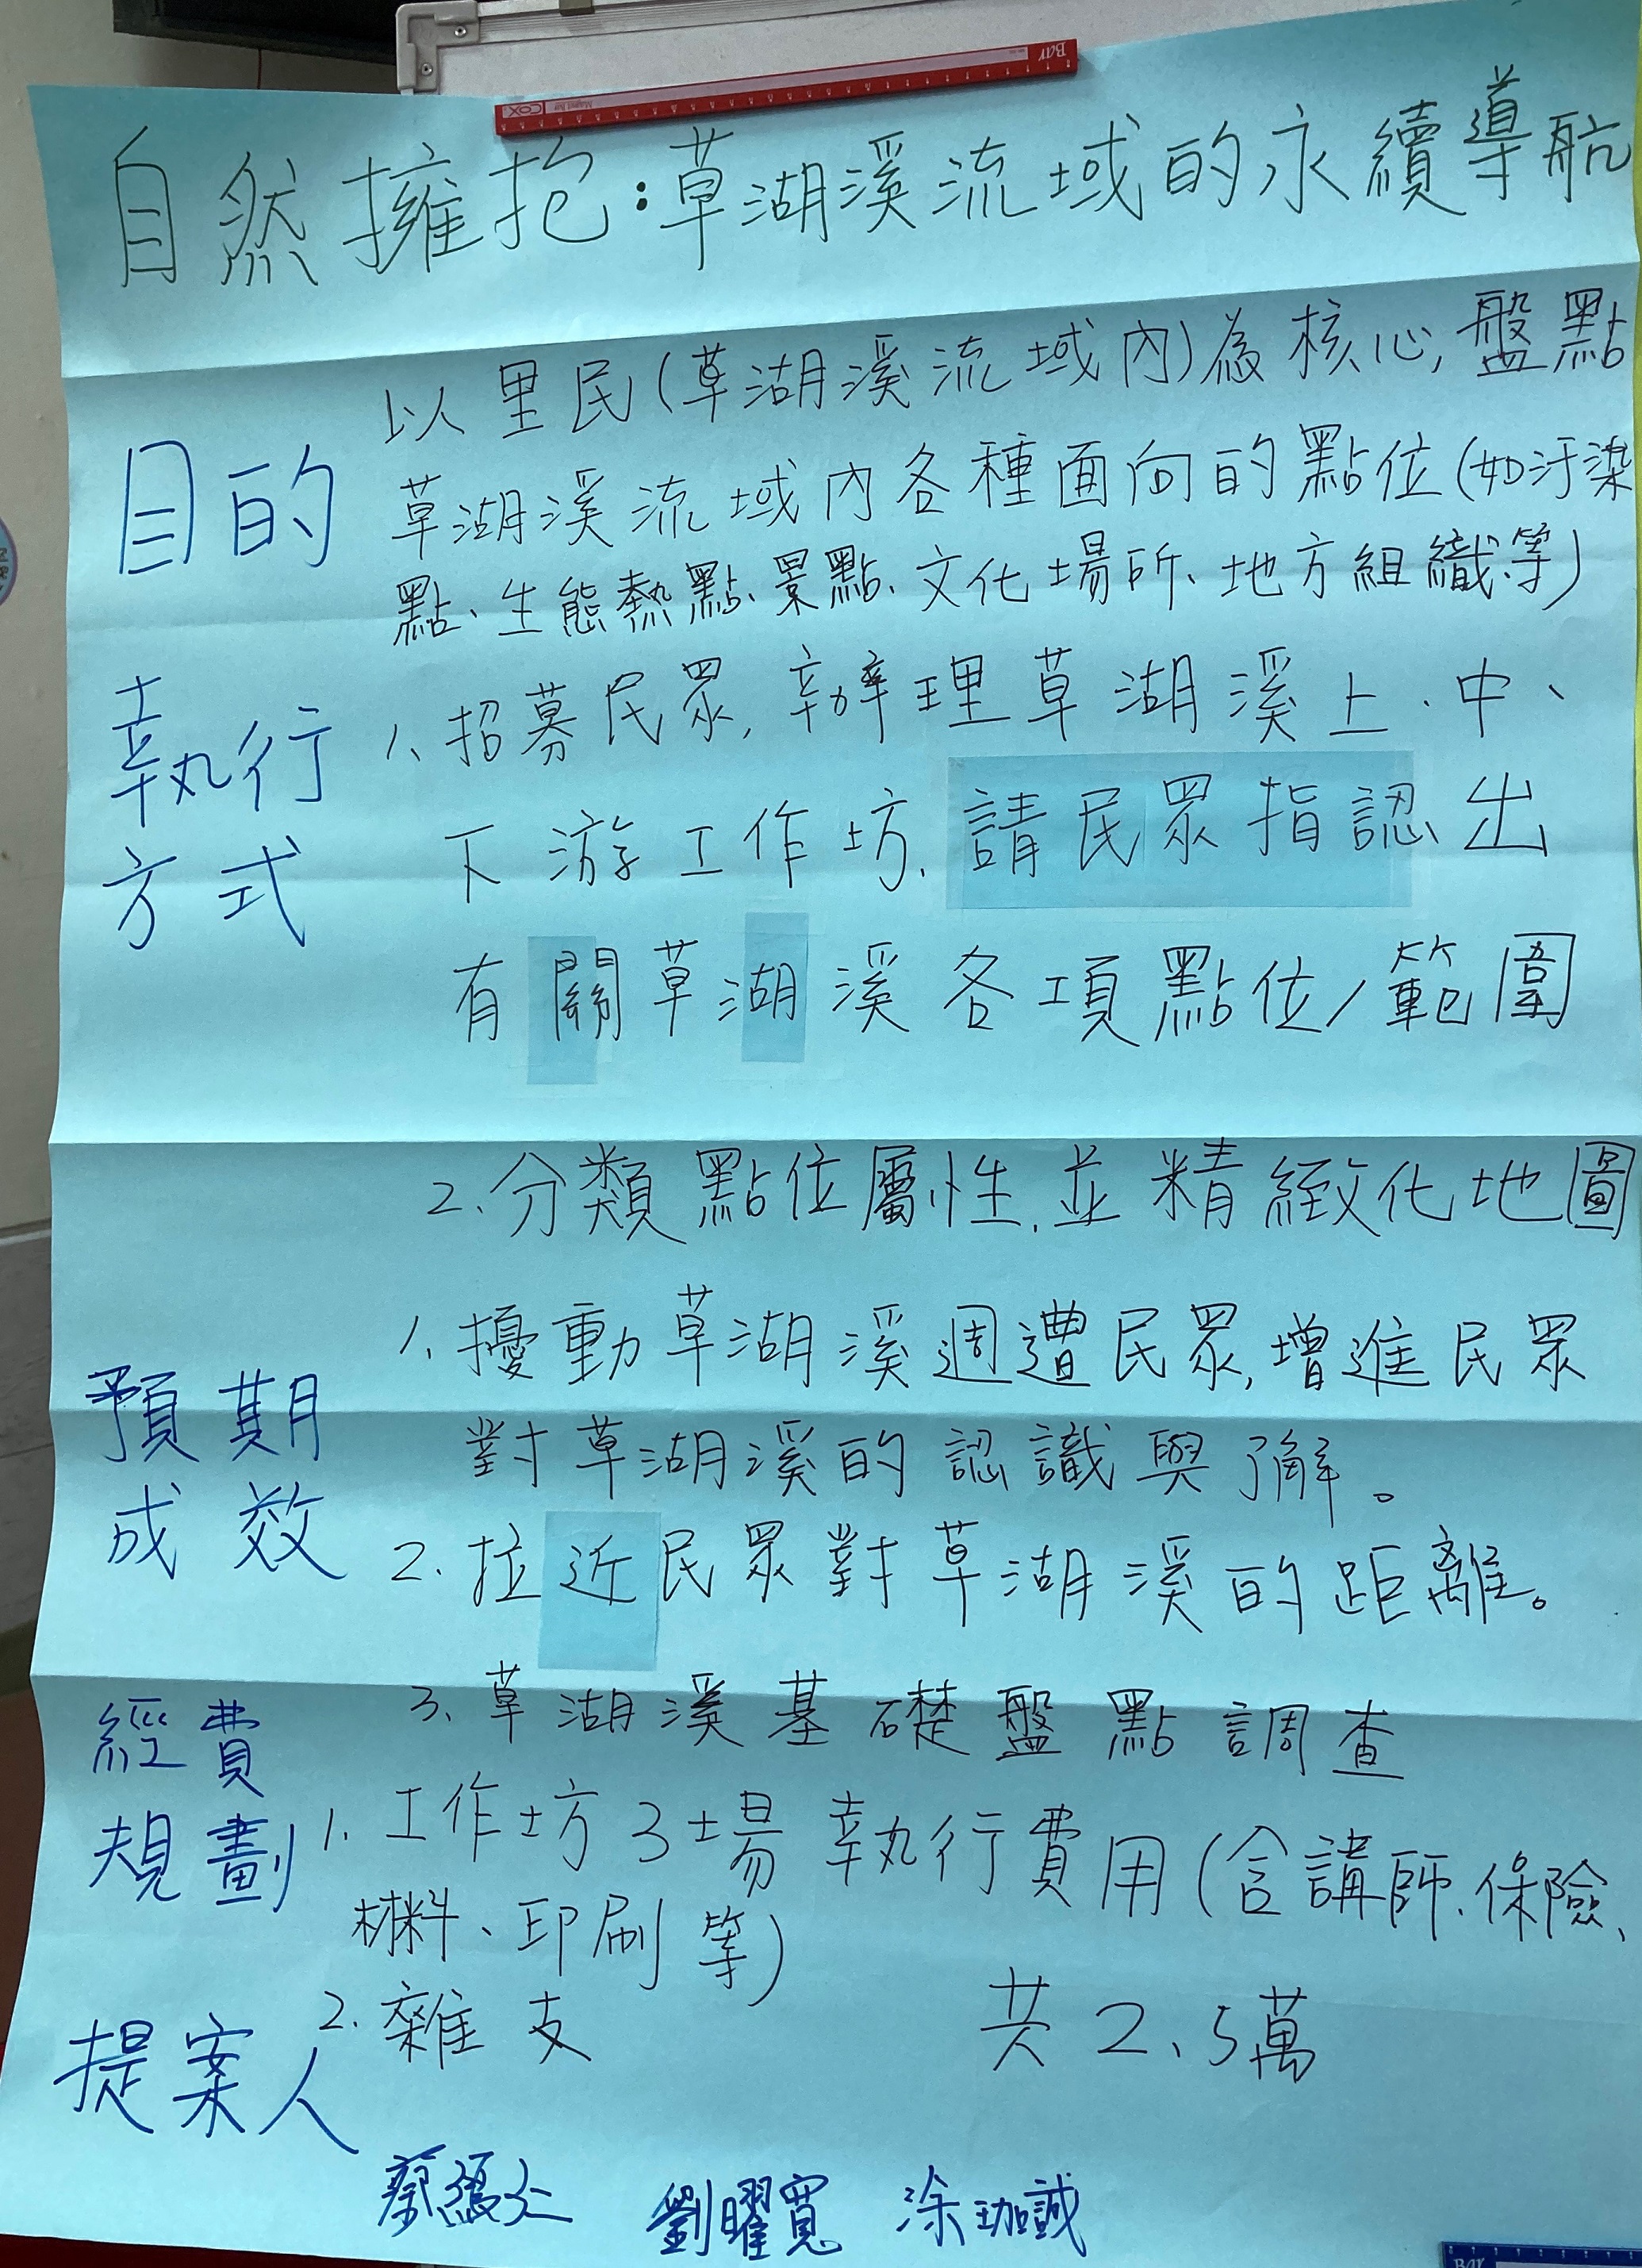 自然擁抱:草湖溪流域的永續導航
目的
以里民(草湖溪流域內)為核心,盤點
草湖溪流域內各種面向的點位(如汙染
點、生態熱點、景點、文化場所、地方組織等)
執行
方式
1、招募民眾,辦理草湖溪上、中、
下游工作坊,請民眾指認出
有關草湖溪各項點位/範圍
2、分類點位屬性,並精緻化地圖
預期
成效
1、擾動草湖溪週遭民眾,增進民眾
對草湖溪的認識與了解。
2、拉近民眾對草湖溪的距離。
3、草湖溪基礎盤點調查
經費
規劃
1、工作坊3場執行費用(含講師、保險、
材料、印刷等)
2、雜支
共2.5萬
提案人
劉曜寬
COX
Bar
Bar